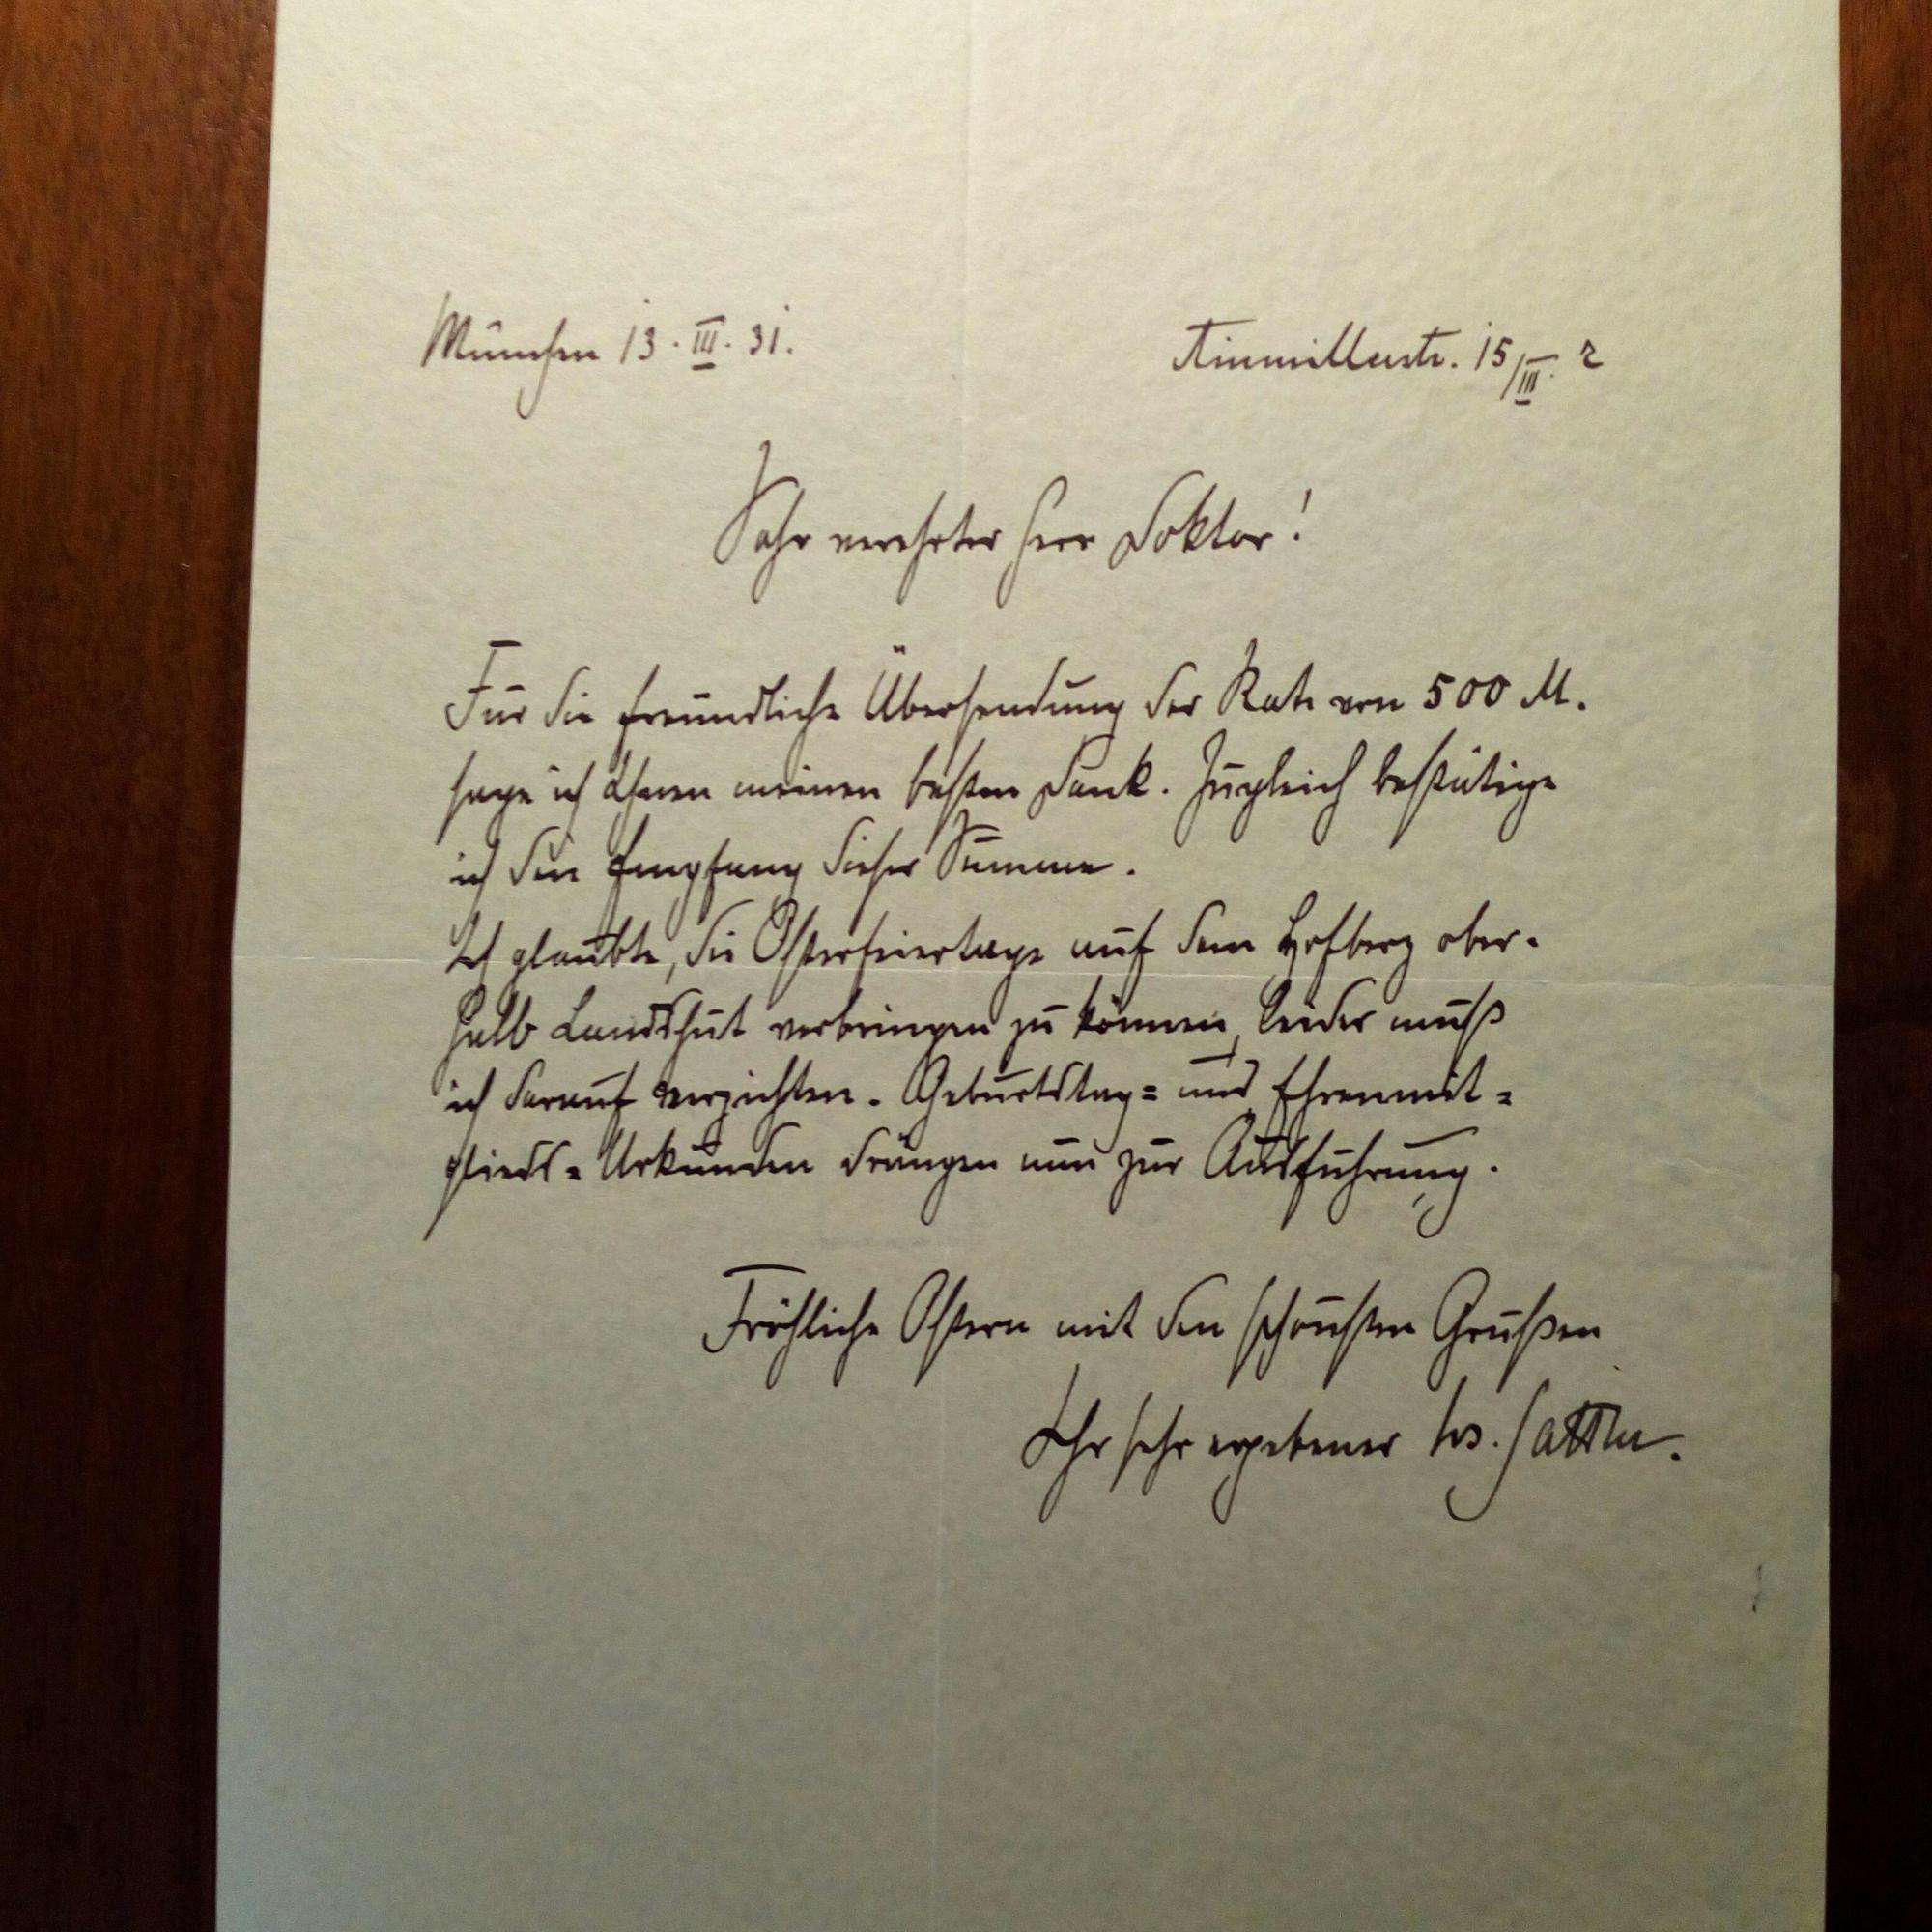 München 13. III. 31.
Ainmillerstr. 15/III. r
Sehr verehrter Herr Doktor!
Für die freundliche Übersendung der Rate von 500 M.
sage ich Ihnen meinen besten Dank. Zugleich bestätige
ich den Empfang dieser Summe.
Ich glaubte, die Osterfeiertage auf dem Hofberg ober-
halb Landshut verbringen zu können, leider muß
ich darauf verzichten. Geburtstag= und Ehrenmit=
glieds=Urkunden drängen nun zur Ausführung.
Fröhliche Ostern mit den schönsten Grüßen
Ihr sehr ergebener Jos. Sattler.